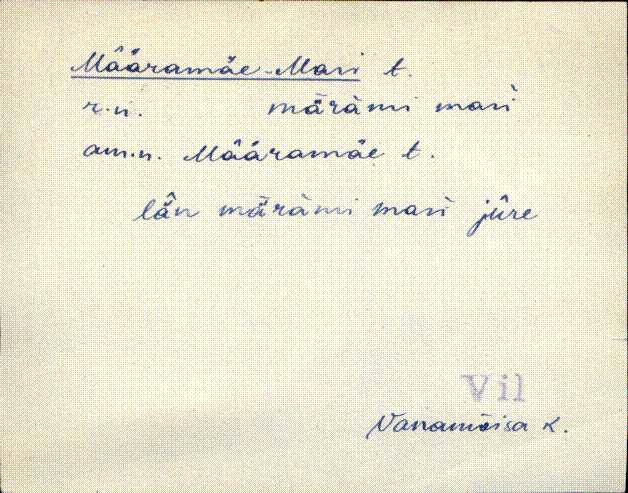 Määramäe-Mari t.
r.n. märämi mari
am.n. Määramäe t.
län märämi mari jûre
Vil
Vanamõisa k.